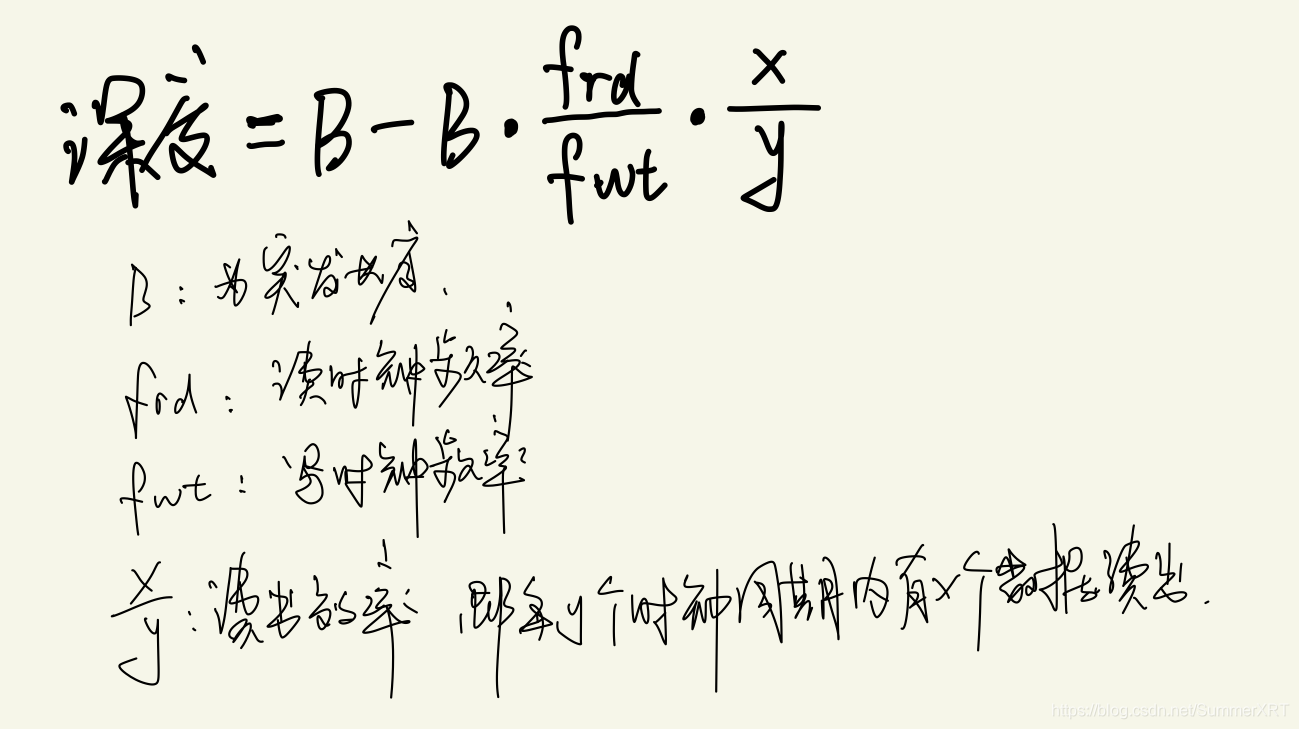 深度 = B - B · frd/fwt · x/y
B : 为突发长度.
frd : 读时钟频率
fwt : 写时钟频率
x/y : 读出效率, 即每y个时钟周期内有x个数据读出.
https://blog.csdn.net/SummerXRT